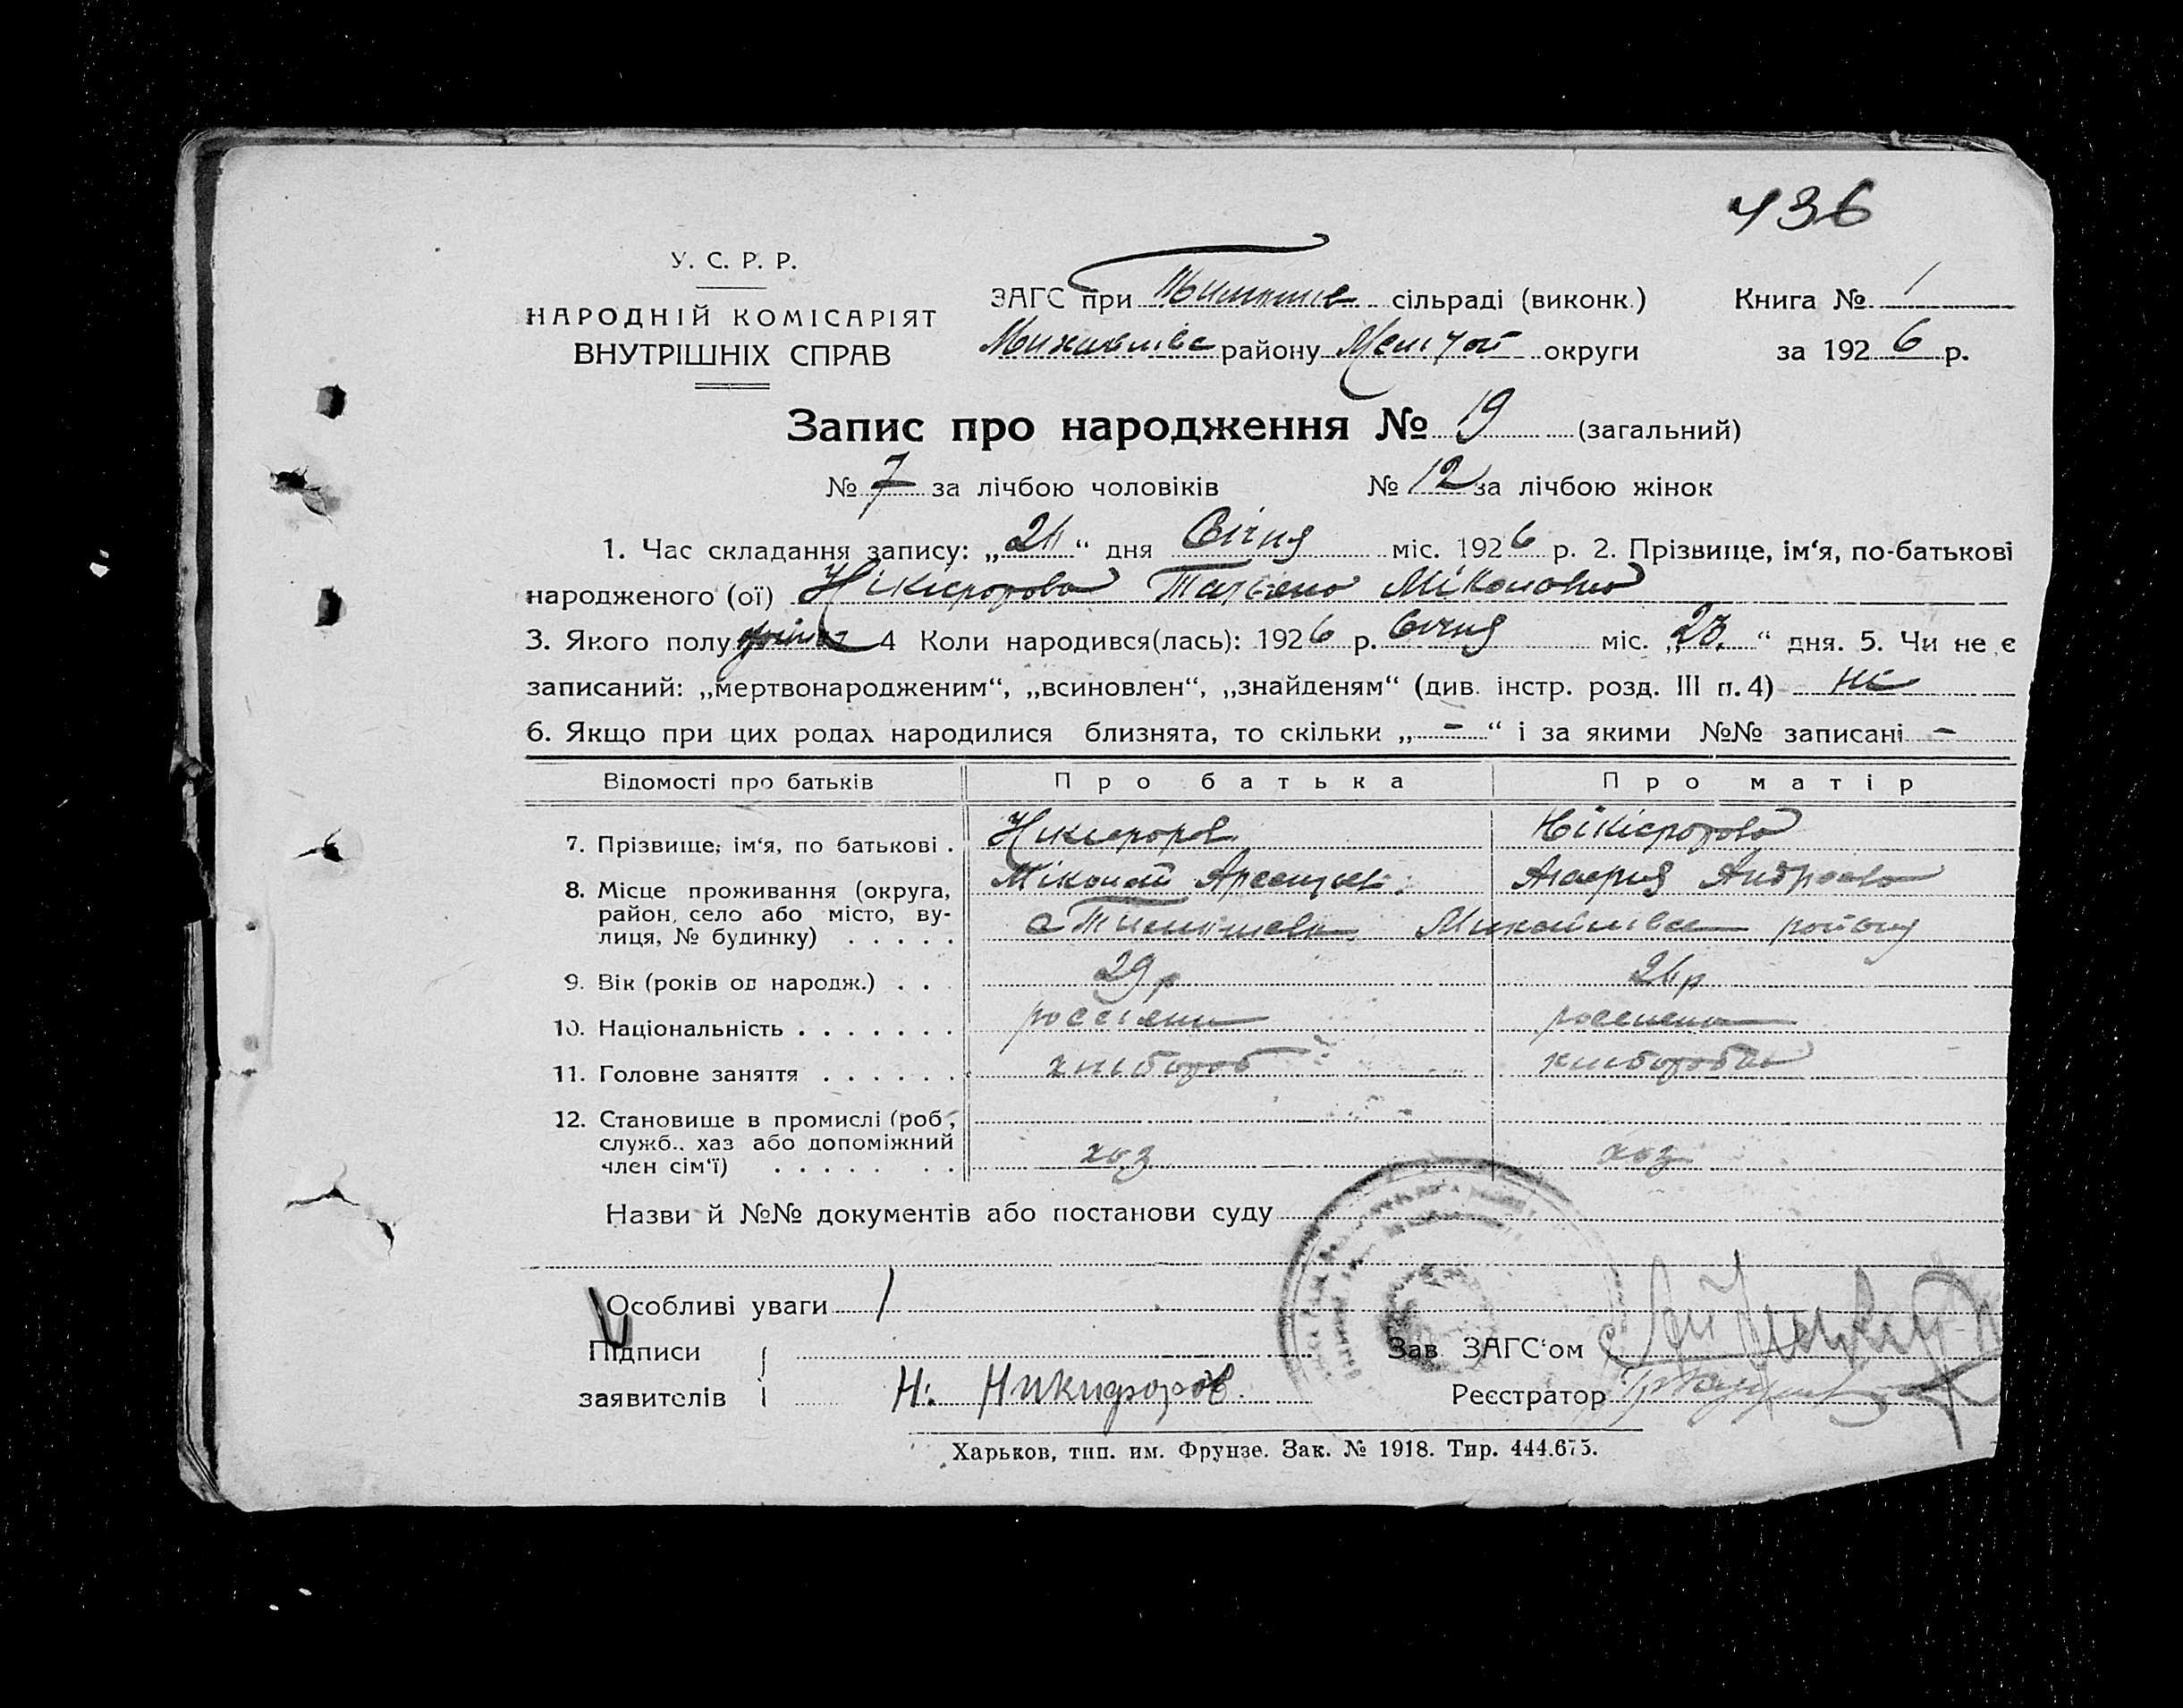 436
У. С. Р. Р.
НАРОДНІЙ КОМІСАРІЯТ
ВНУТРІШНІХ СПРАВ
ЗАГС при сільраді (виконк.)
району округи
Книга № 1
за 1926 р.
Запис про народження № 19 (загальний)
№ 7 за лічбою чоловіків № 12 за лічбою жінок
1. Час складання запису: „ “ дня Січня міс. 1926 р. 2. Прізвище, ім‘я, по-батькові
народженого (ої) Нікіфорова Татьяна Міколовна
3. Якого полу 4 Коли народився(лась): 1926 р. січня міс. „23.“ дня. 5. Чи не є
записаний: „мертвонародженим“, „всиновлен“, „знайденям“ (див. інстр. розд. III п. 4) ні
6. Якщо при цих родах народилися близнята, то скільки „ - “ і за якими №№ записані -
Відомості про батьків Про батька Про матір
7. Прізвище, ім‘я, по батькові . Никифоров Нікіфорова
Міколай Андреева
8. Місце проживання (округа,
район, село або місто, ву-
лиця, № будинку) . . . . . с Михайлівск району
9. Вік (років од народж.) . . 29 р 26 р
10. Національність . . . . . . .
11. Головне заняття . . . . . . хлібороб
12. Становище в промислі (роб.,
служб., хаз або допоміжний
член сім‘ї) . . . . . . . . хоз хоз
Назви й №№ документів або постанови суду
Особливі уваги
Підписи
заявителів Н. Никифоров.
Зав ЗАГС‘ом
Реєстратор
Харьков, тип. им. Фрунзе. Зак. № 1918. Тир. 444.675.